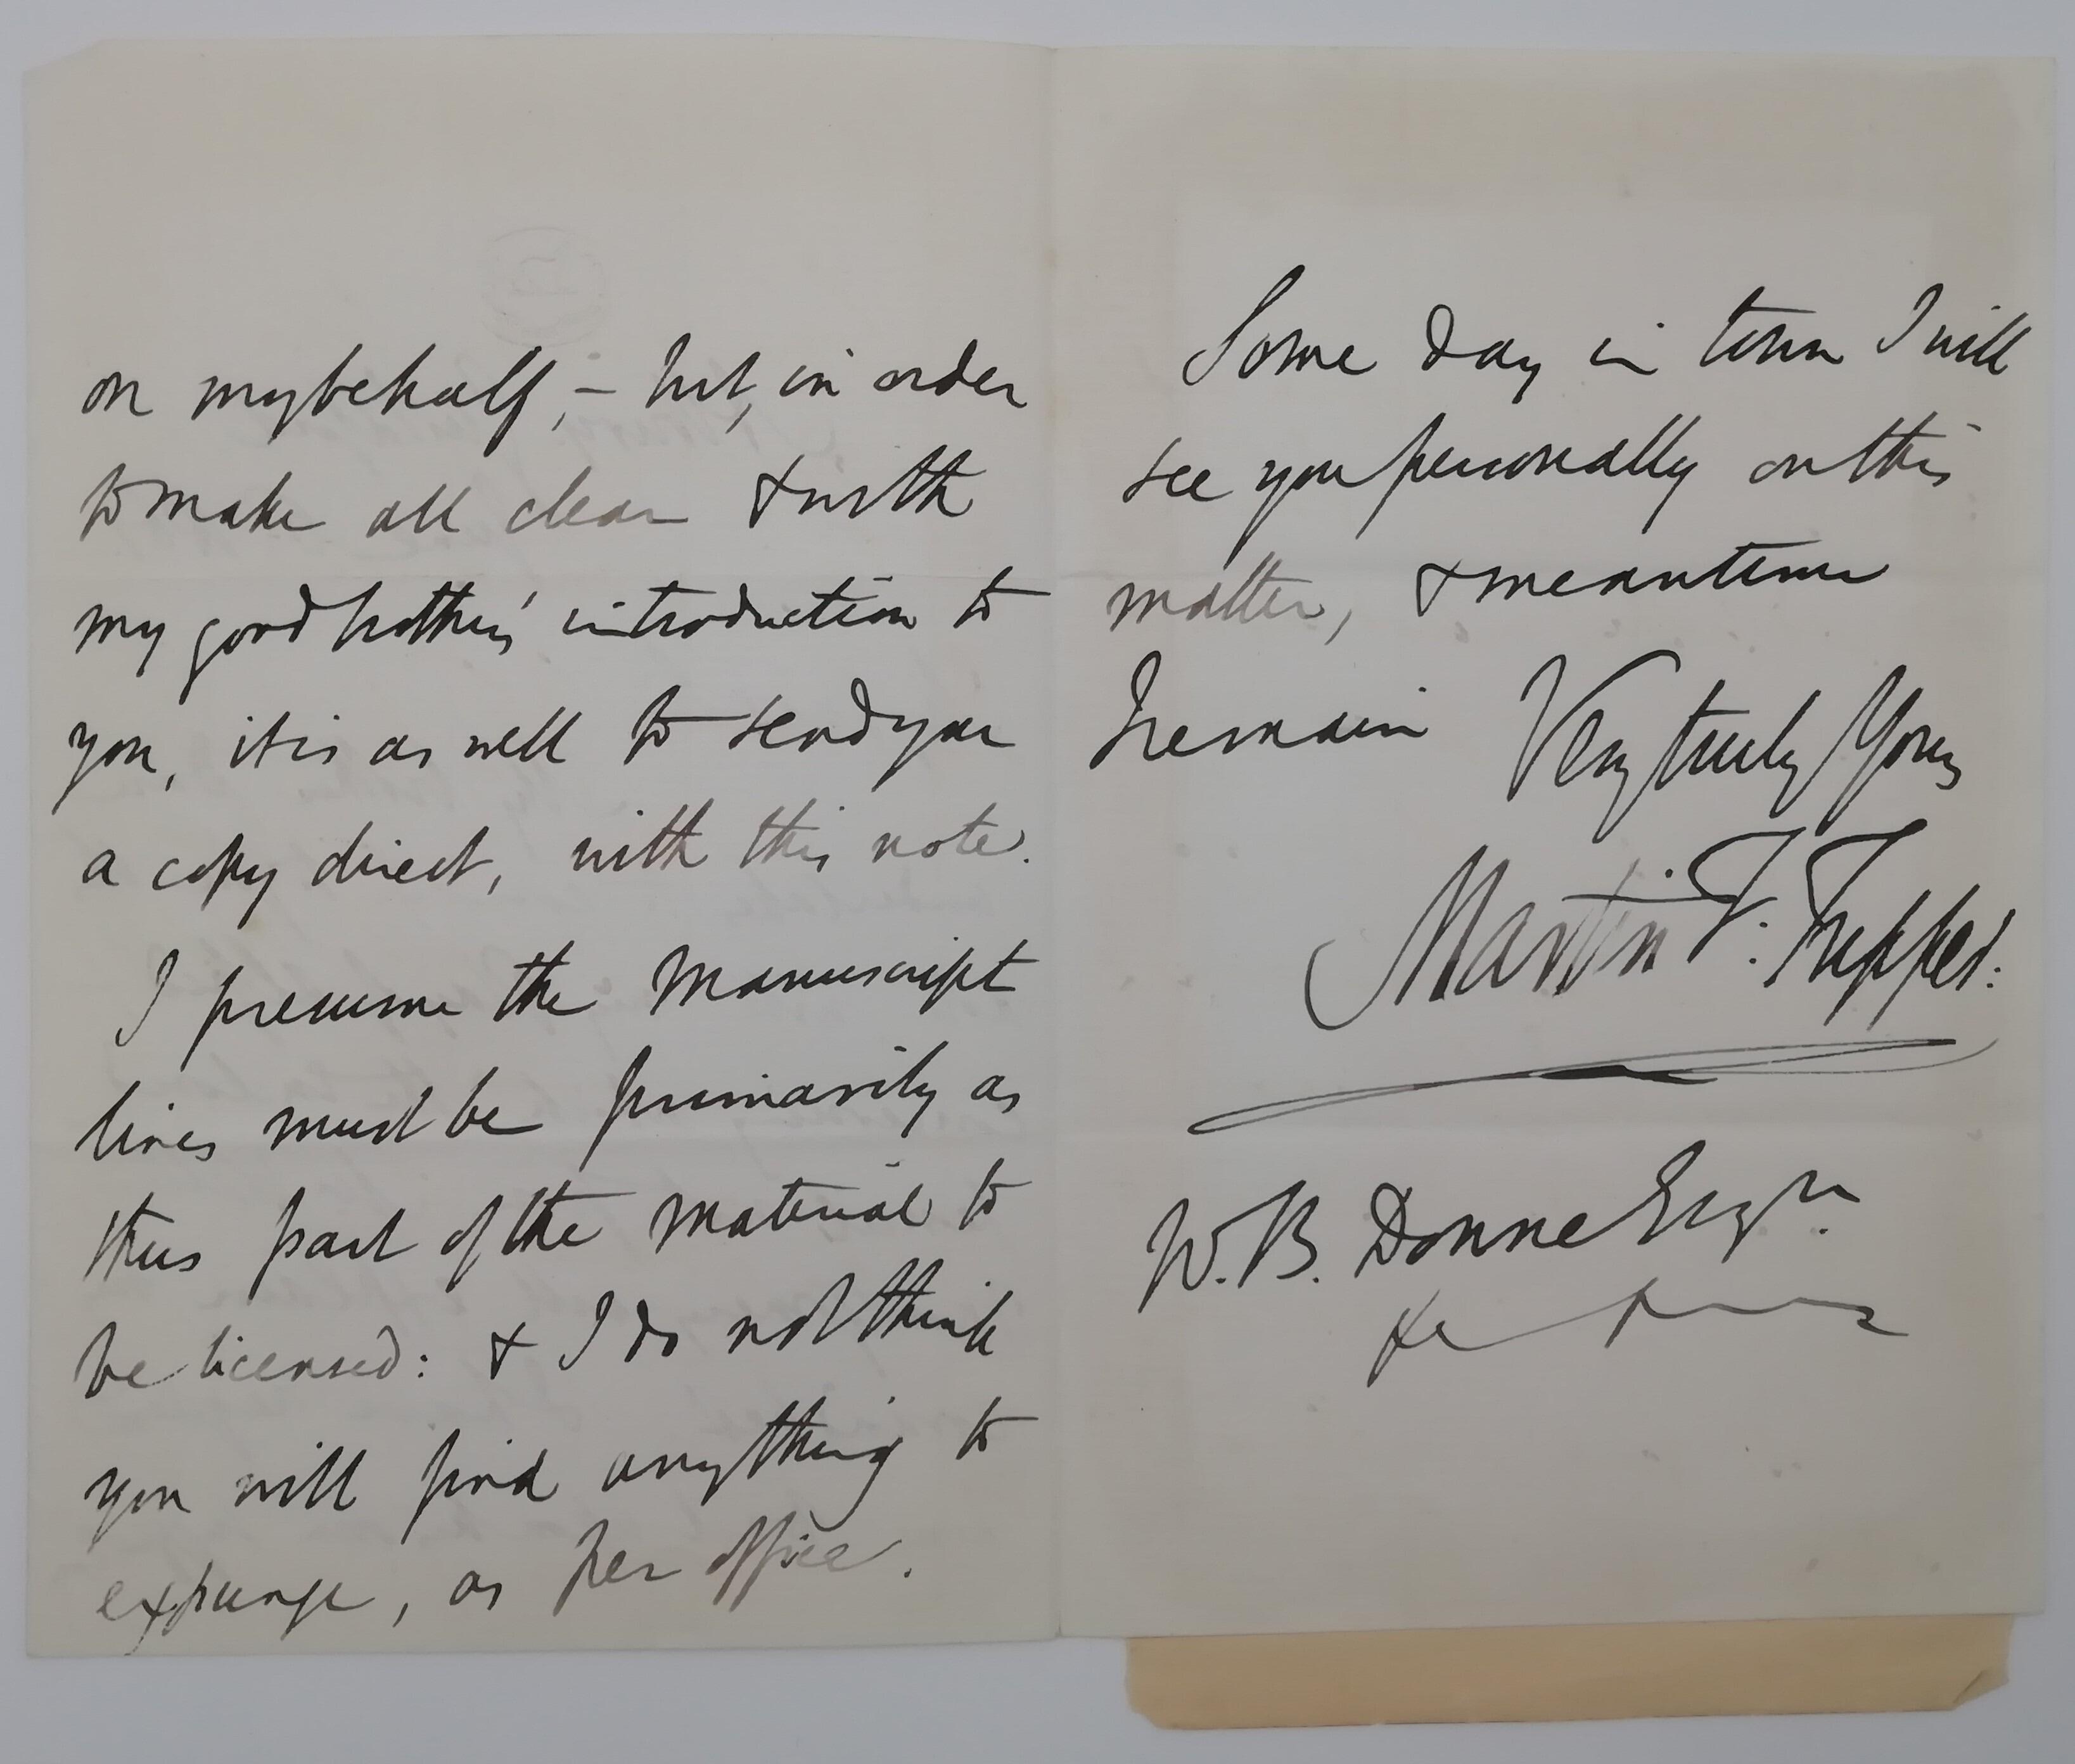 on my behalf, – but, in order
to make all clear & with
my good brother's introduction to
you, it is as well to send you
a copy direct, with this note.
I presume the manuscript
lines must be primarily as
thus part of the material to
be licensed: & I do not think
you will find anything to
expunge, as per office.
Some day in town I will
see you personally on this
matter, & meantime
I remain Very truly Yours
Martin F. Tupper.
W. B. Donne Esqre.